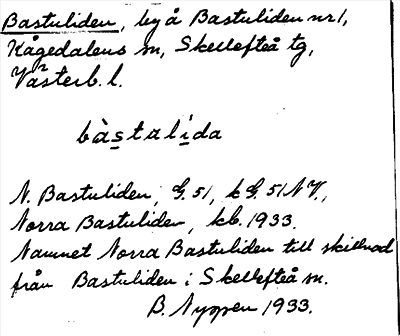 Bastuliden, by å Bastuliden nr 1,
Kågedalens sn, Skellefteå tg,
Västerb. l.
bàstalida
N. Bastuliden, G. 51, kG. 51 NV.,
Norra Bastuliden, kb. 1933.
Namnet Norra Bastuliden till skillnad
från Bastuliden i Skellefteå sn.
B. 1933.